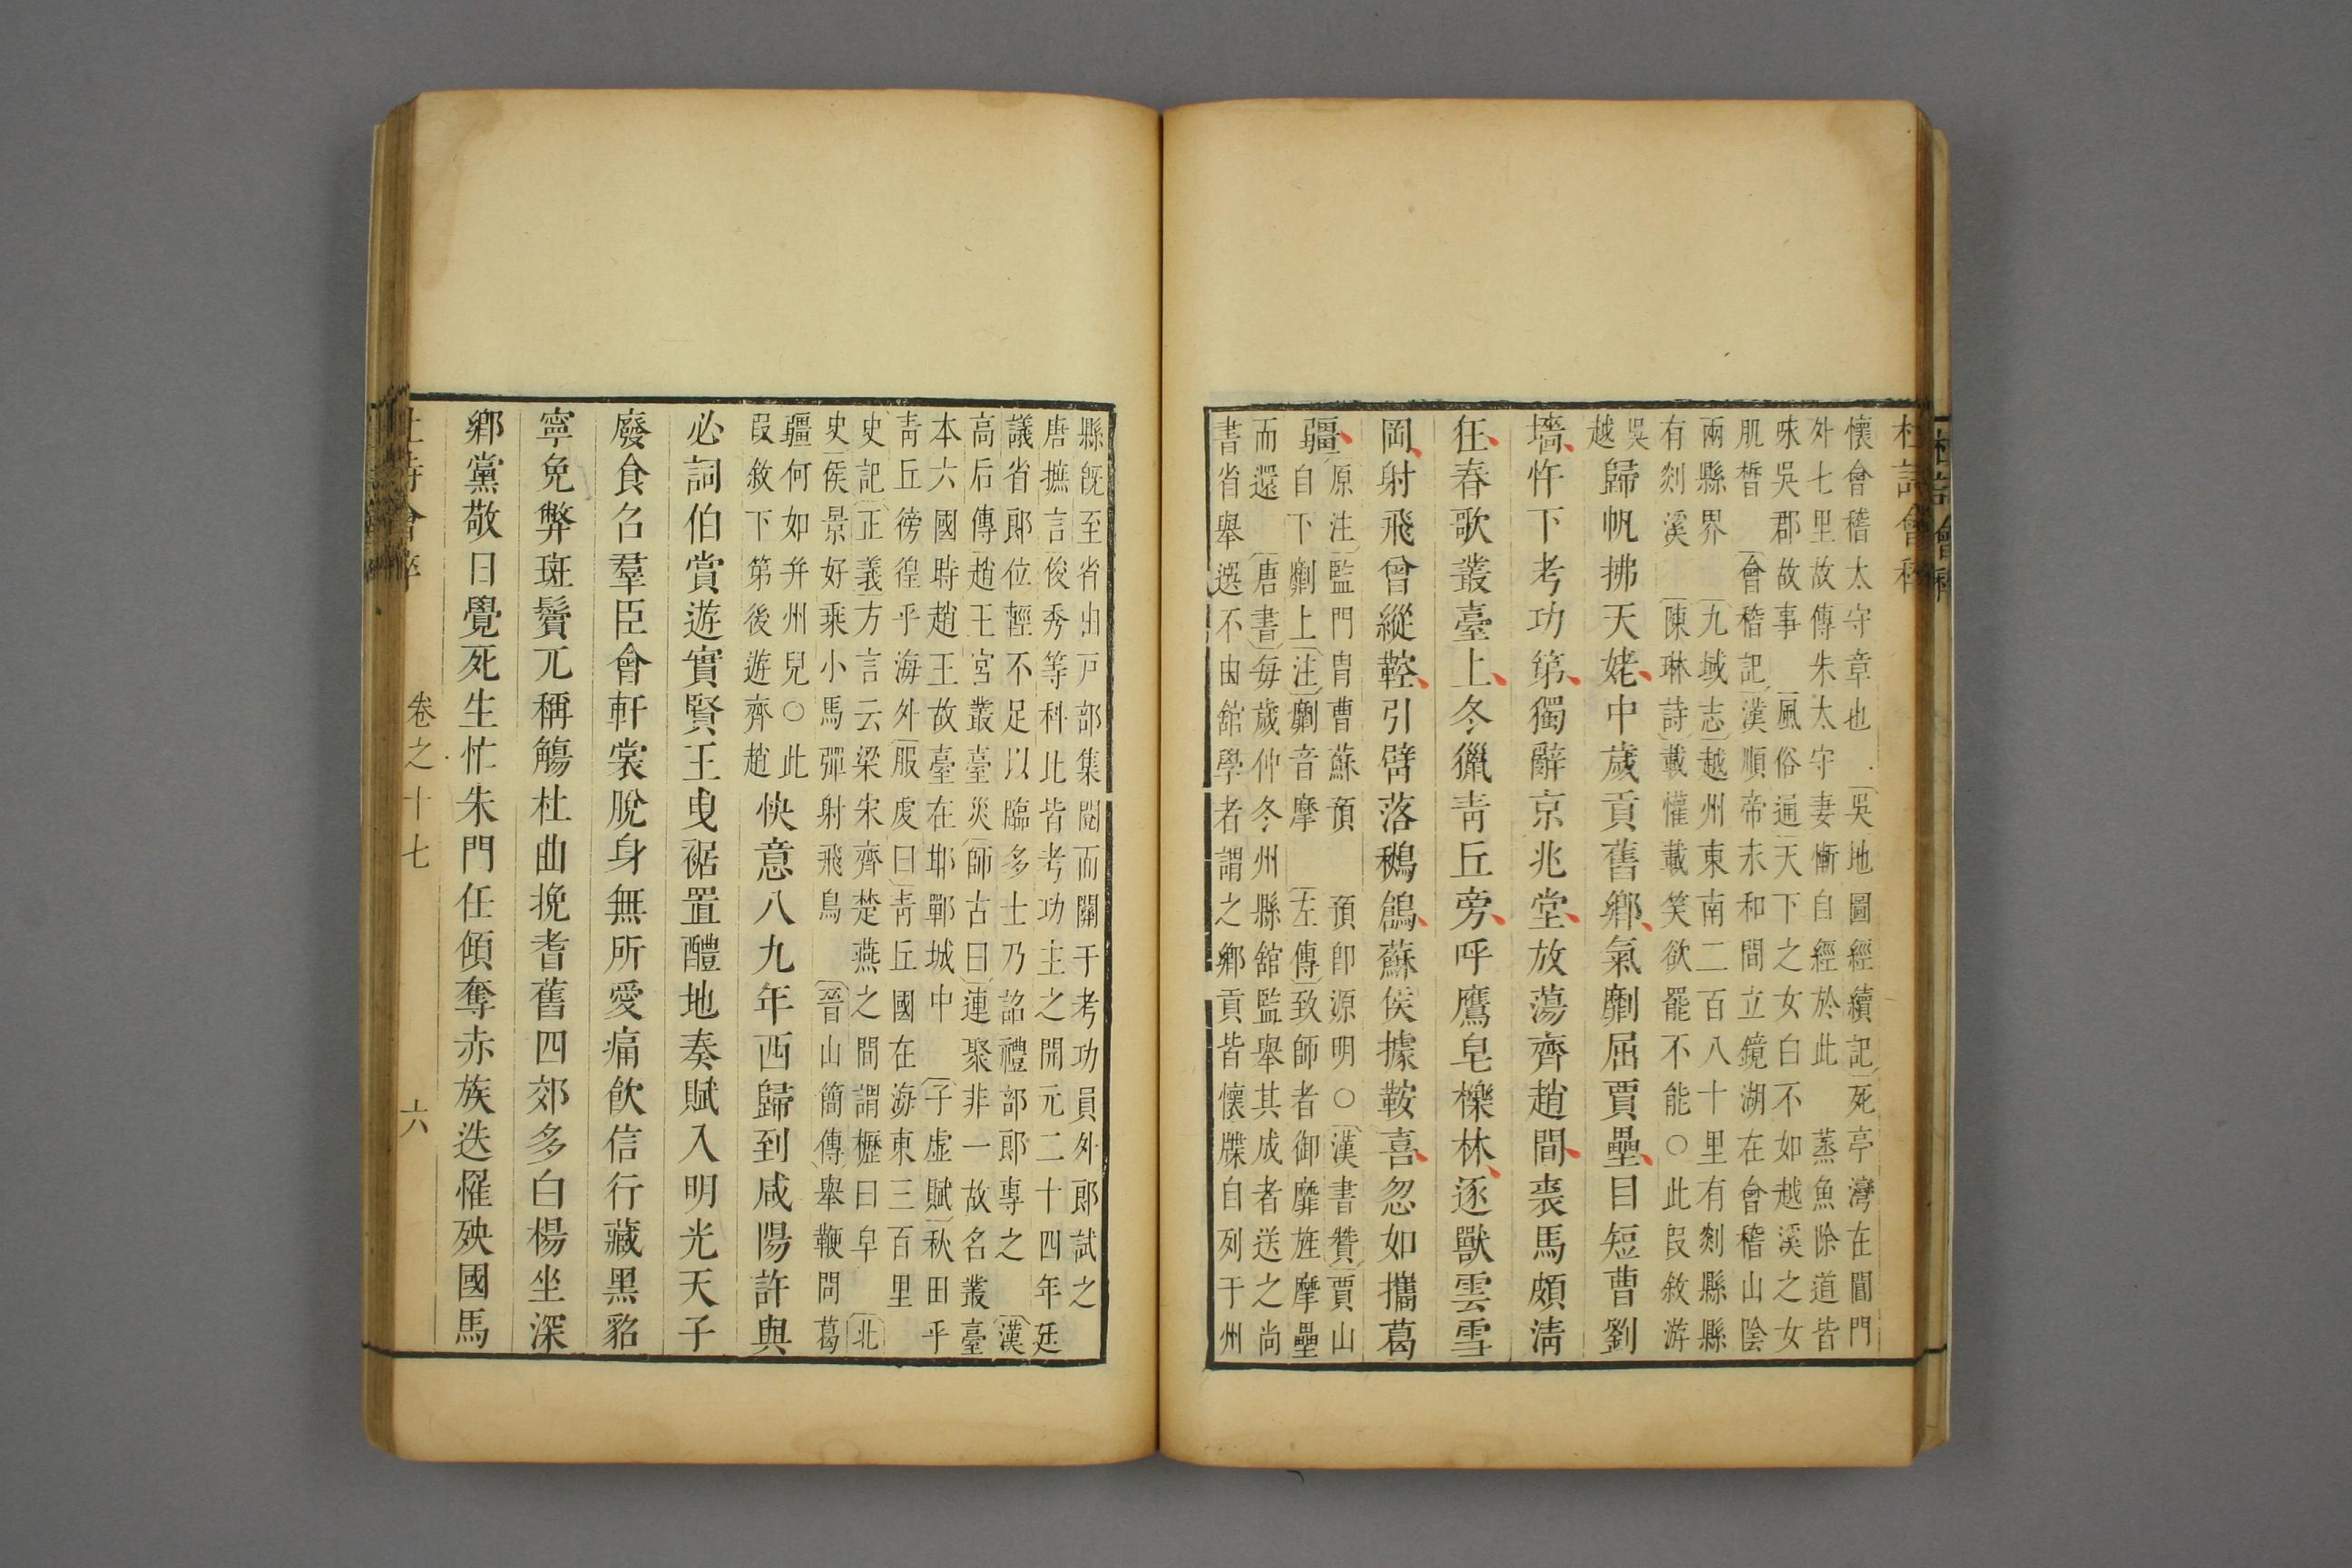 杜詩會稡
懷會稽太守章也〔吳地圖經續記〕死亭灣在閶門
外七里故傳朱太守妻慚自經於此 蒸魚除道皆
昧吳郡故事〔風俗通〕天下之女白不如越溪之女
肌皙〔會稽記〕漢順帝永和間立鏡湖在會稽山陰
兩縣界〔九域志〕越州東南二百八十里有剡縣縣
有剡溪〔陳琳詩〕載懽載笑欲罷不能○此叚敘游
吳
越
歸帆拂天姥中歲貢舊鄉氣劘屈賈壘目短曹劉
墻忤下考功第獨辭京兆堂放蕩齊趙間裘馬頗淸
狂春歌叢臺上冬獵靑丘旁呼鷹皂櫟林逐獸雲雪
岡射飛曾縱鞚引臂落鶖鶬蘇侯據鞍喜忽如攜葛
疆
〔原注〕監門胄曹蘇預 預卽源明○〔漢書贊〕賈山
自下劘上〔注〕劘音摩 〔左傳〕致師者御靡旌摩壘
而還 〔唐書〕每歲仲冬州縣舘監舉其成者送之尚
書省舉選不由舘學者謂之鄉貢皆懷牒自列于州
縣旣至省由戸部集閱而關于考功員外郎試之
唐摭言俊秀等科此皆考功主之開元二十四年廷
議省郎位輕不足以臨多士乃詔禮部郎專之 〔漢
高后傳〕趙王宮叢臺災〔師古曰〕連聚非一故名叢臺
本六國時趙王故臺在邯鄲城中 〔子虛賦〕秋田乎
靑丘徬徨乎海外〔服虔曰〕靑丘國在海東三百里
史記〔正義〕方言云梁宋齊楚燕之間謂櫪曰皁 〔北
史〕侯景好乘小馬彈射飛鳥 〔晉山簡傳〕舉鞭問葛
疆何如并州兒○此
叚敘下第後遊齊趙
快意八九年西歸到咸陽許與
必詞伯賞遊實賢王曳裾置醴地奏賦入明光天子
廢食召羣臣會軒裳脫身無所愛痛飮信行藏黑貂
寧免弊斑鬢兀稱觴杜曲挽耆舊四郊多白楊坐深
鄉黨敬日覺死生忙朱門任傾奪赤族迭罹殃國馬
卷之十七
六